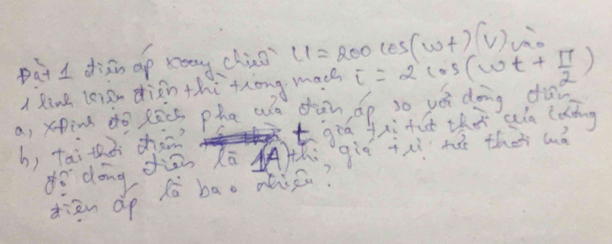 Đặt 1 điện áp xoay chiều U = 200 cos(ωt)(V) vào
1 linh kiện điện thì trong mạch i = 2 cos(ωt + π/2)
a, xđịnh độ lệch pha của điện áp so với dòng điện
b, Tại thời điểm t giá trị tức thời của cường
độ dòng điện là 1A thì giá trị tức thời của
điện áp là bao nhiêu?